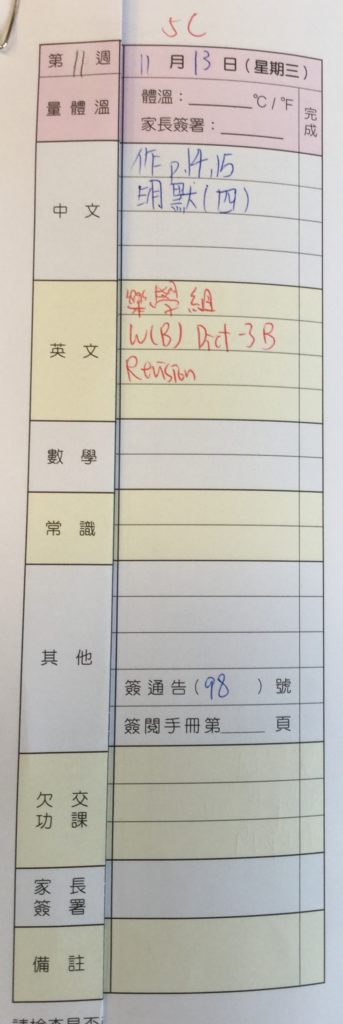 5C
第 11 週 11 月 13 日(星期三)
量體溫 體溫:______℃/℉ 完成
家長簽署:______
中文 作 p.14,15
明默(四)
英文 樂學組
W(B) Dict-3B
Revision
數學
常識
其他
簽通告(98)號
簽閱手冊第____頁
欠交功課
家長簽署
備註